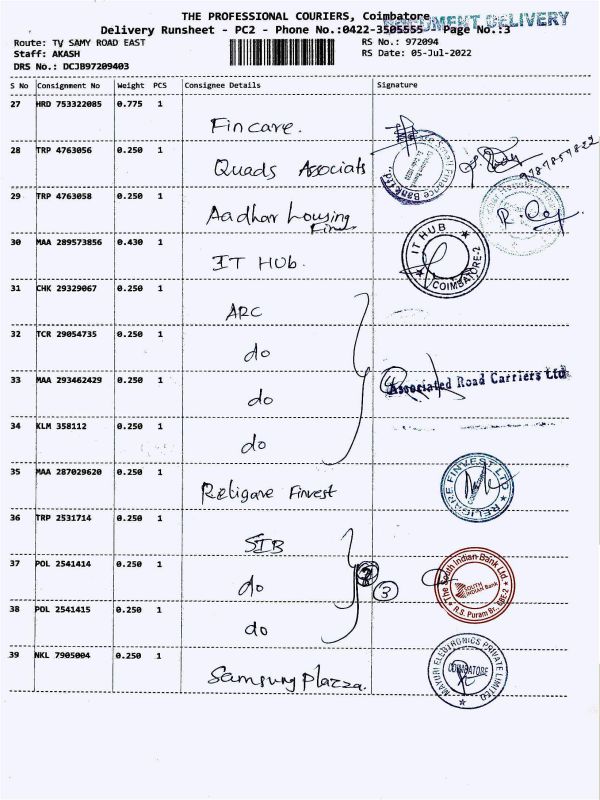 THE PROFESSIONAL COURIERS, Coimbatore
DOCUMENT DELIVERY
Delivery Runsheet - PC2 - Phone No.:0422-3505555 - Page No.:3
Route: TV SAMY ROAD EAST
RS No.: 972094
Staff: AKASH
RS Date: 05-Jul-2022
DRS No.: DCJB97209403
S No Consignment No Weight PCS Consignee Details Signature
27 HRD 753322085 0.775 1
Fincare.
28 TRP 4763056 0.250 1
Quads Associats
9787857822
29 TRP 4763058 0.250 1
Aadhar housing
Fins
30 MAA 289573856 0.430 1
IT HUb.
IT HUB
COIMBATORE-2
31 CHK 29329067 0.250 1
ARC
32 TCR 29054735 0.250 1
do
33 MAA 293462429 0.250 1
do
Associated Road Carriers Ltd
34 KLM 358112 0.250 1
do
35 MAA 287029620 0.250 1
Religare Finvest
RELIGARE FINVEST LTD
36 TRP 2531714 0.250 1
SIB
37 POL 2541414 0.250 1
do
3
The South Indian Bank Ltd.
SOUTH INDIAN Bank
R.S. Puram Br., CBE-2
38 POL 2541415 0.250 1
do
39 NKL 7905004 0.250 1
Samsung Plazza.
MAYURI ELECTRONICS PRIVATE LIMITED
COIMBATORE